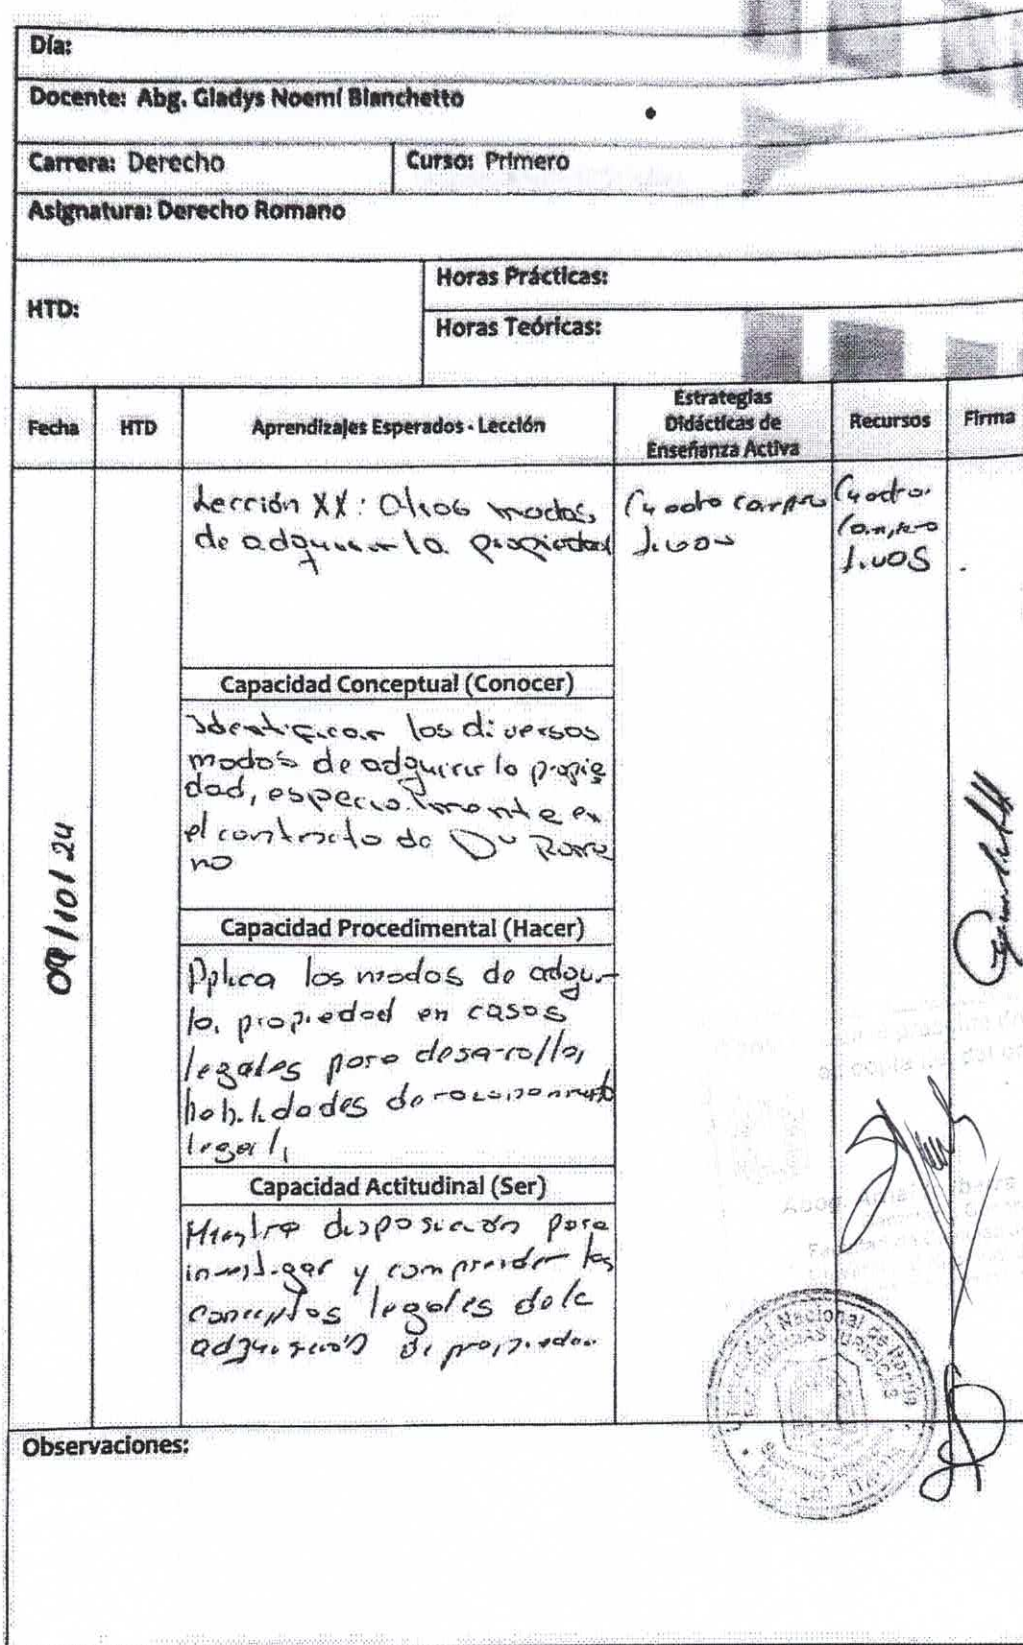 Día:
Docente: Abg. Gladys Noemí Bianchetto
Carrera: Derecho
Curso: Primero
Asignatura: Derecho Romano
HTD:
Horas Prácticas:
Horas Teóricas:
Fecha
HTD
Aprendizajes Esperados - Lección
Estrategias
Didácticas de
Enseñanza Activa
Recursos
Firma
09/10/24
Lección XX: Otros modos
de adquirir la propiedad
Cuadro compara
tivos
Cuadros
Compara
tivos
Capacidad Conceptual (Conocer)
Identificar los diversos
modos de adquirir la propie
dad, especialmente en
el contracto de Dº Roma
no
Capacidad Procedimental (Hacer)
Aplica los modos de adqui
la propiedad en casos
legales para desarrollar
habilidades de razonamiento
legal
Capacidad Actitudinal (Ser)
Muestra disposición para
investigar y comprender los
conceptos legales de la
adquisición de propiedad
Universidad Nacional de Itapúa
Observaciones: